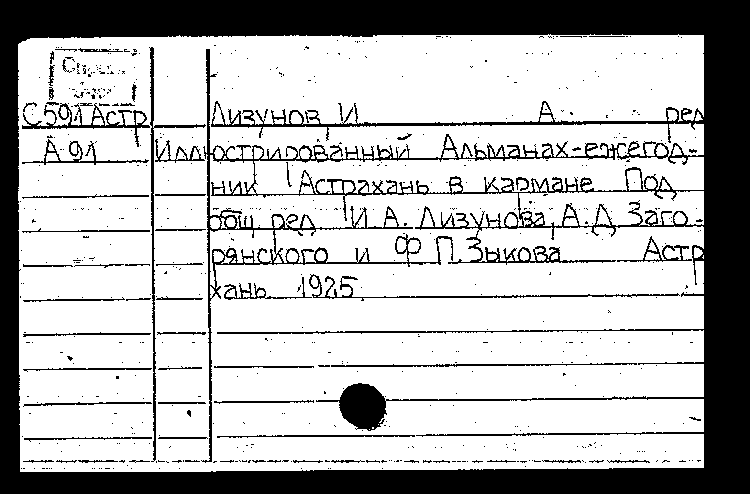 С591Астр Лизунов, И. А. ред
А91 Иллюстрированный Альманах-ежегод-
ник "Астрахань в кармане Под
общ ред И.А. Лизунова, А.Д. Заго-
рянского и Ф.П. Зыкова Астр
хань 1925.